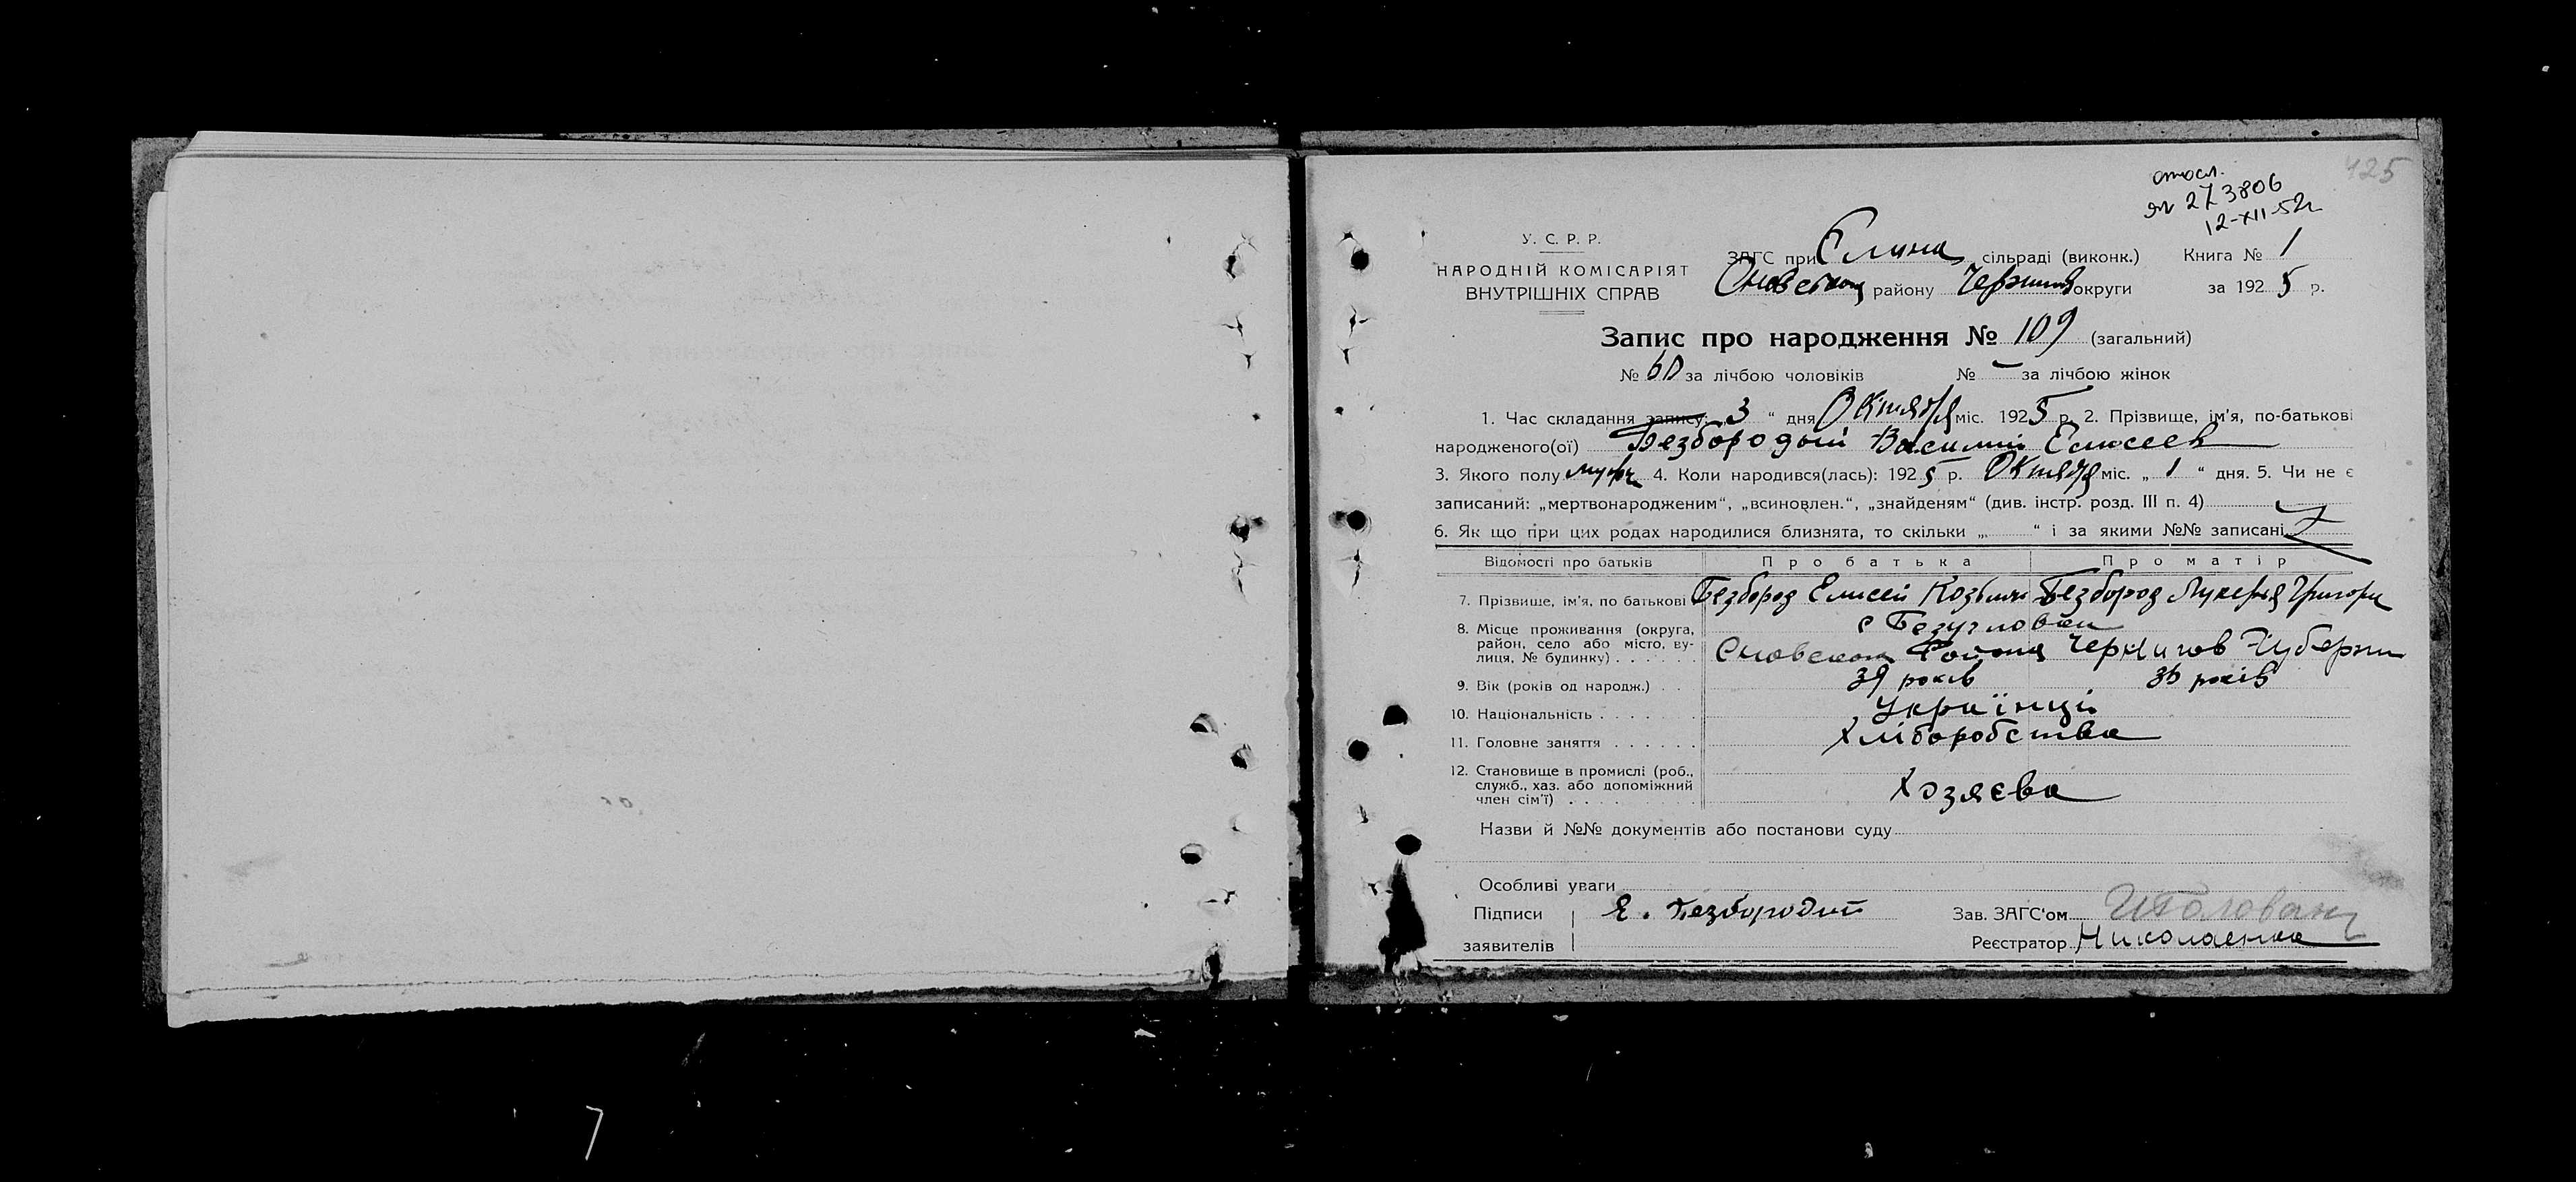 125
273806
12-XII-52г
У. С. Р. Р.
НАРОДНІЙ КОМІСАРІЯТ
ВНУТРІШНІХ СПРАВ
ЗАГС при Елино сільраді (виконк.) Книга № 1
Сновского району Чернигов округи за 1925 р.
Запис про народження № 109 (загальний)
№ 60 за лічбою чоловіків № — за лічбою жінок
1. Час складання запису: „3“ дня Октября міс. 1925 р. 2. Прізвище, ім'я, по-батькові
народженого(ої) Безбородый Василий Елисеев
3. Якого полу муж 4. Коли народився(лась): 1925 р. Октября міс. „1“ дня. 5. Чи не є
записаний: „мертвонародженим“, „всиновлен.“, „знайденям“ (див. інстр. розд. III п. 4)
6. Як що при цих родах народилися близнята, то скільки „ “ і за якими №№ записані
Відомості про батьків Про батька Про матір
7. Прізвище, ім'я, по батькові Безбород Елисей Козьмич Безбород Лукерья Григорь
8. Місце проживання (округа, район, село або місто, вулиця, № будинку) с Безугловки
Сновского Района Чернигов Губерни
9. Вік (років од народж.) 39 років 36 років
10. Національність Українці
11. Головне заняття Хліборобства
12. Становище в промислі (роб., служб., хаз. або допоміжний член сім'ї) Хозяєва
Назви й №№ документів або постанови суду
Особливі уваги
Підписи заявителів Е. Безбородий
Зав. ЗАГС'ом
Реєстратор Николаенко